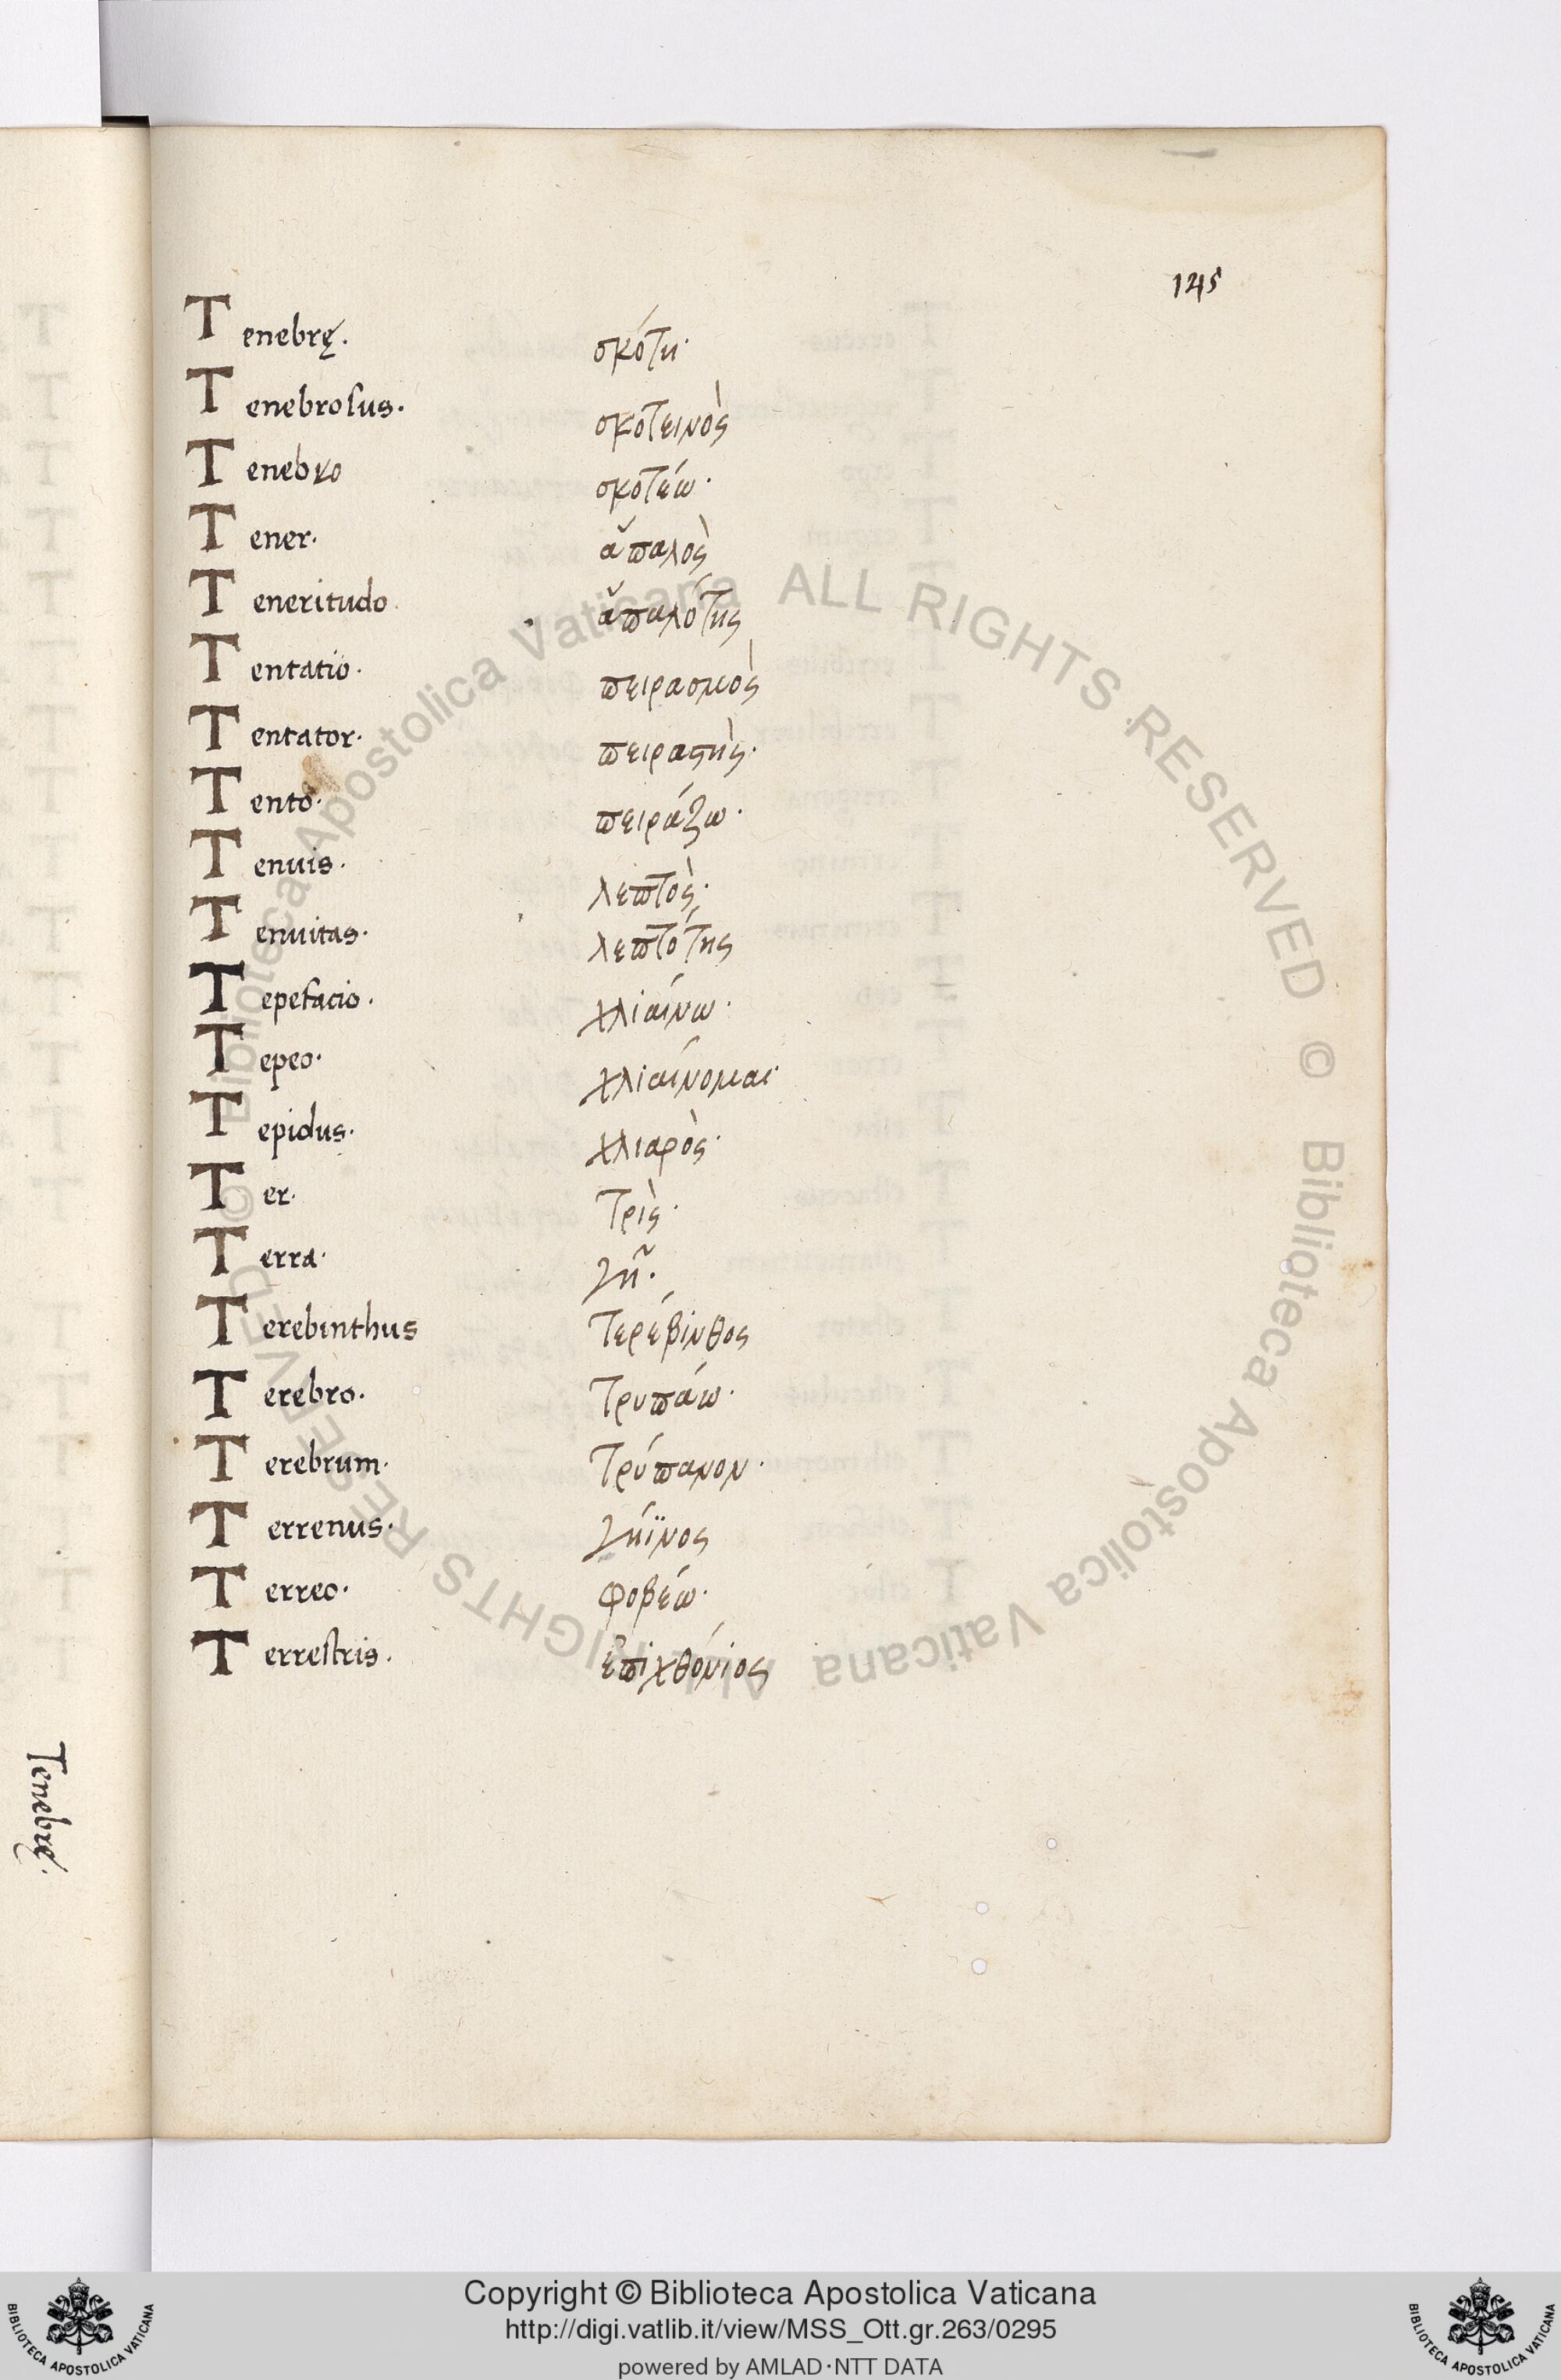 145
Tenebrę. σκότη·
Tenebrosus. σκοτεινὸς
Tenebro σκοτέω·
Tener. ἁπαλὸς
Teneritudo. ἁπαλότης
Tentatio. πειρασμὸς
Tentator. πειραστὴς.
Tento. πειράζω·
Tenuis. λεπτὸς·
Tenuitas. λεπτότης
Tepefacio. χλιαίνω·
Tepeo. χλιαίνομαι
Tepidus. χλιαρὸς·
Ter. τρὶς·
Terra. γῆ.
Terebinthus τερέβινθος
Terebro. τρυπάω·
Terebrum. τρύπανον·
Terrenus. γήϊνος
Terreo. φοβέω·
Terrestris. ἐπιχθόνιος
Tenebrę.
© Biblioteca Apostolica Vaticana ALL RIGHTS RESERVED © Biblioteca Apostolica Vaticana ALL RIGHTS RESERVED
Copyright © Biblioteca Apostolica Vaticana
http://digi.vatlib.it/view/MSS_Ott.gr.263/0295
powered by AMLAD·NTT DATA
BIBLIOTECA APOSTOLICA VATICANA
BIBLIOTECA APOSTOLICA VATICANA